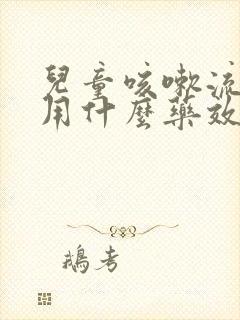 兒童咳嗽流
用什麼藥效
鵝考